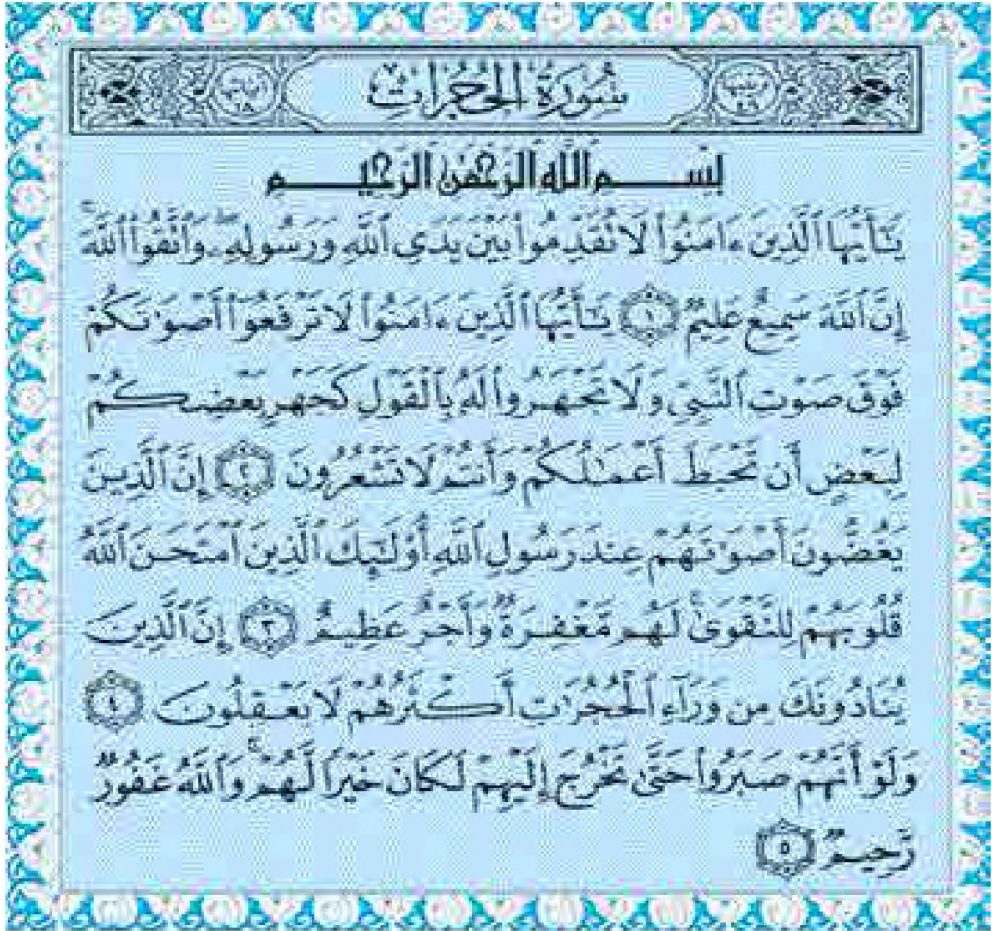 سُورَةُ الحُجُرَاتِ
بِسْمِ ٱللَّهِ ٱلرَّحْمَٰنِ ٱلرَّحِيمِ
يَٰٓأَيُّهَا ٱلَّذِينَ ءَامَنُوا۟ لَا تُقَدِّمُوا۟ بَيْنَ يَدَىِ ٱللَّهِ وَرَسُولِهِۦ ۖ وَٱتَّقُوا۟ ٱللَّهَ ۚ
إِنَّ ٱللَّهَ سَمِيعٌ عَلِيمٌ ١ يَٰٓأَيُّهَا ٱلَّذِينَ ءَامَنُوا۟ لَا تَرْفَعُوٓا۟ أَصْوَٰتَكُمْ
فَوْقَ صَوْتِ ٱلنَّبِىِّ وَلَا تَجْهَرُوا۟ لَهُۥ بِٱلْقَوْلِ كَجَهْرِ بَعْضِكُمْ
لِبَعْضٍ أَن تَحْبَطَ أَعْمَٰلُكُمْ وَأَنتُمْ لَا تَشْعُرُونَ ٢ إِنَّ ٱلَّذِينَ
يَغُضُّونَ أَصْوَٰتَهُمْ عِندَ رَسُولِ ٱللَّهِ أُو۟لَٰٓئِكَ ٱلَّذِينَ ٱمْتَحَنَ ٱللَّهُ
قُلُوبَهُمْ لِلتَّقْوَىٰ ۚ لَهُم مَّغْفِرَةٌ وَأَجْرٌ عَظِيمٌ ٣ إِنَّ ٱلَّذِينَ
يُنَادُونَكَ مِن وَرَآءِ ٱلْحُجُرَٰتِ أَكْثَرُهُمْ لَا يَعْقِلُونَ ٤
وَلَوْ أَنَّهُمْ صَبَرُوا۟ حَتَّىٰ تَخْرُجَ إِلَيْهِمْ لَكَانَ خَيْرًا لَّهُمْ ۚ وَٱللَّهُ غَفُورٌ
رَّحِيمٌ ٥